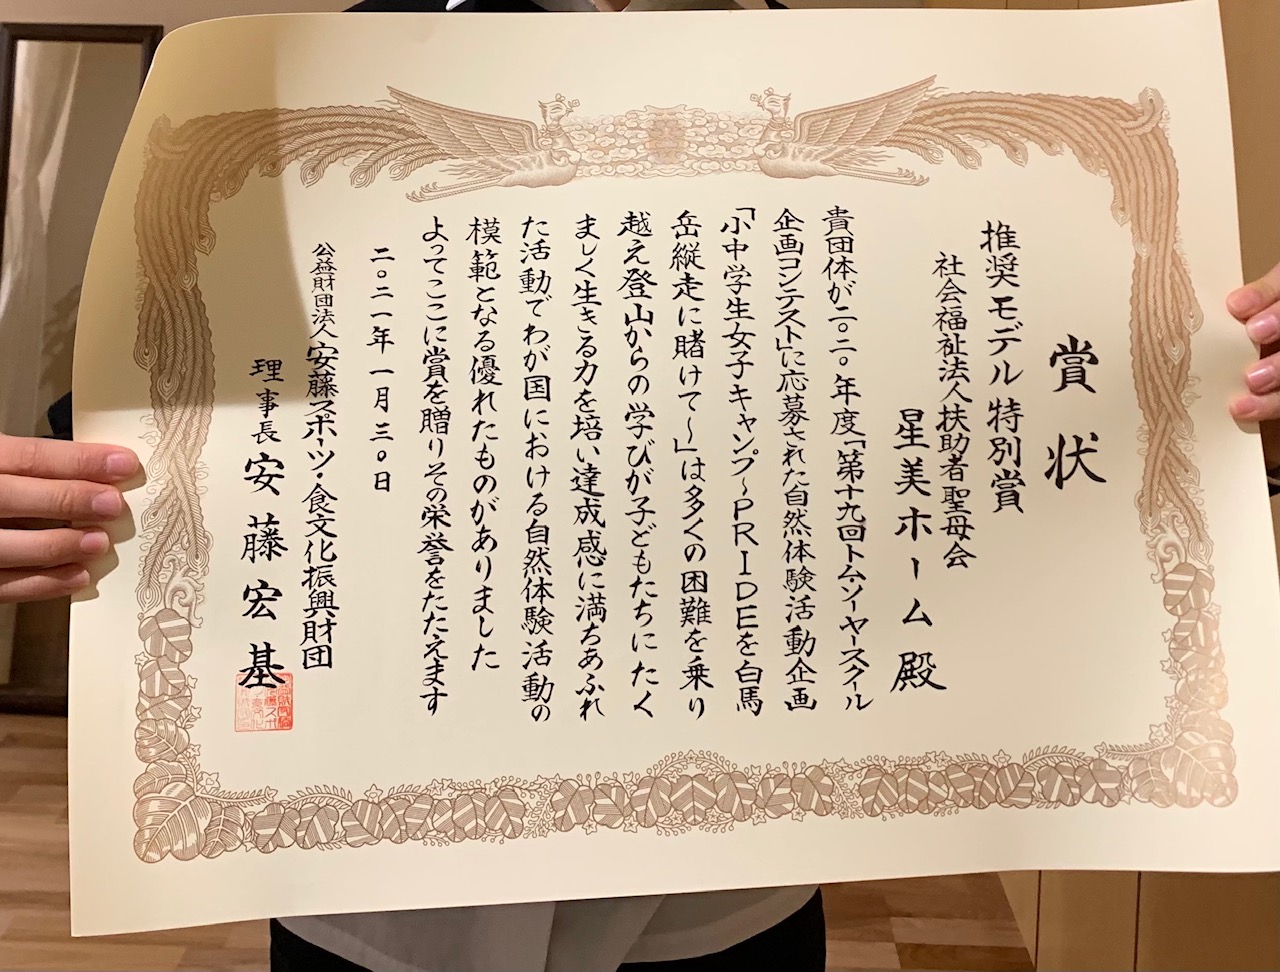 賞状
推奨モデル特別賞
社会福祉法人扶助者聖母会
星美ホーム殿
貴団体が二〇二〇年度「第十九回トム・ソーヤースクール
企画コンテスト」に応募された自然体験活動企画
「小中学生女子キャンプ~PRIDEを白馬
岳縦走に賭けて~」は多くの困難を乗り
越え登山からの学びが子どもたちにたく
ましく生きる力を培い達成感に満ちあふれ
た活動でわが国における自然体験活動の
模範となる優れたものがありました
よってここに賞を贈りその栄誉をたたえます
二〇二一年一月三〇日
公益財団法人安藤スポーツ・食文化振興財団
理事長安藤宏基